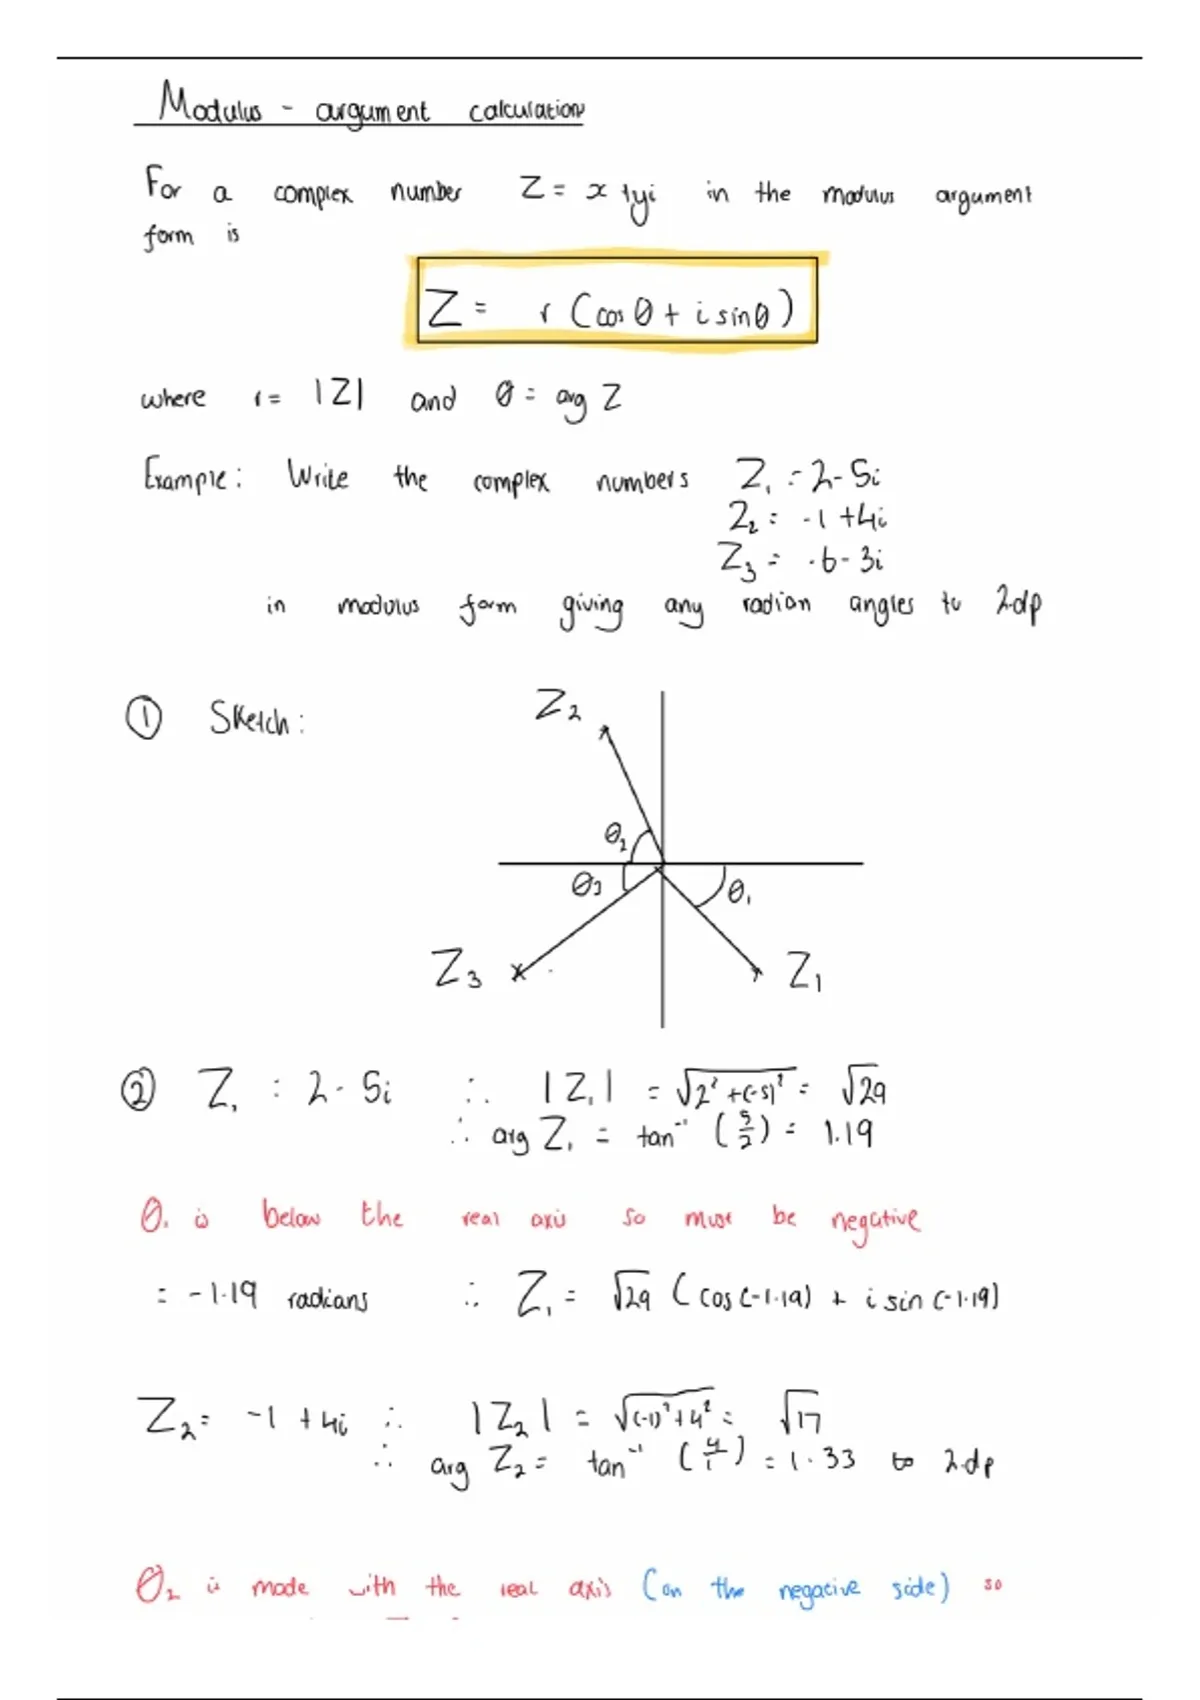 Modulus - argument calculation
For a complex number Z = x + yi in the modulus argument
form is
Z = r (cos θ + i sin θ)
where r = |Z| and θ = arg Z
Example: Write the complex numbers Z₁ = 2 - 5i
Z₂ = -1 + 4i
Z₃ = -6 - 3i
in modulus form giving any radian angles to 2.dp
① Sketch:
Z₂
θ₂
θ₃
θ₁
Z₃
Z₁
② Z₁ = 2 - 5i ∴ |Z₁| = √(2² + (-5)²) = √29
∴ arg Z₁ = tan⁻¹ (5/2) = 1.19
θ₁ is below the real axis so must be negative
= -1.19 radians ∴ Z₁ = √29 (cos(-1.19) + i sin(-1.19)
Z₂ = -1 + 4i ∴ |Z₂| = √((-1)² + 4²) = √17
∴ arg Z₂ = tan⁻¹ (4/1) = 1.33 to 2.dp
θ₂ is made with the real axis (on the negative side) so